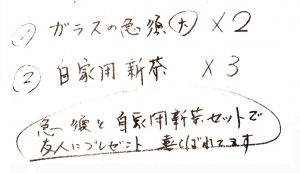 ① ガラスの急須(大) × 2
② 自家用新茶 × 3
急須と自家用新茶セットで
友人にプレゼント 喜ばれてます